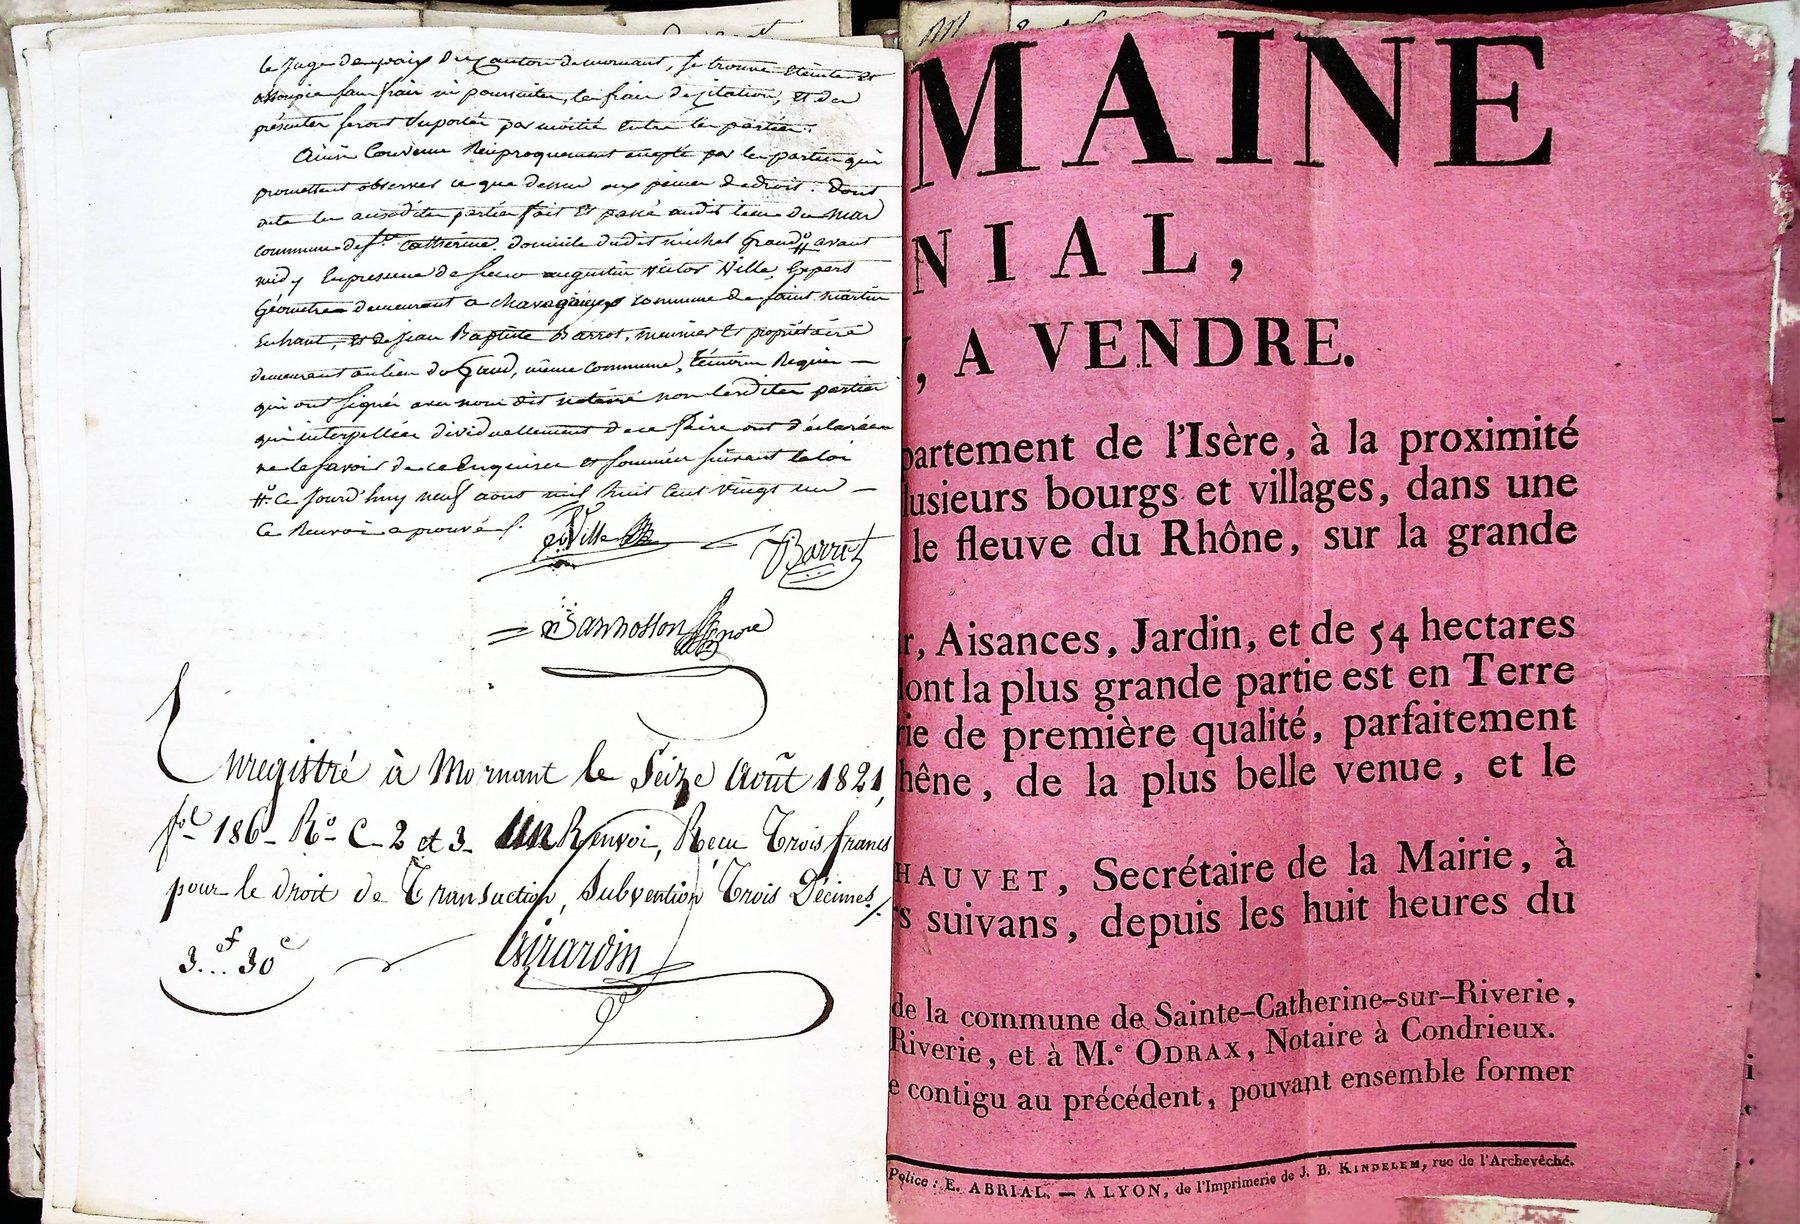 le Juge de paix du Canton de mornant, se trouve éteinte et
assoupie sans frais ni poursuites, les frais de citation, et des
présentes seront suportés par moitié entre les parties.
Ainsi Convenu Réciproquement accepté par les parties qui
promettent observer ce que dessus aux peines de droit. Dont
acte les ausdites parties fait et passé audit lieu du Mar
commune de Ste Catherine. domicile dudit michel Grand avant
midy En presence de sieur augustin victor Ville, Expert
Géometre demeurant a chavagnieux commune de saint martin
En haut, et de jean Baptiste Barrot, meunier et propriétaire
demeurant au lieu du Gand, même commune, témoins Requis —
qui ont signés avec nous dit notaire non lesdites parties
qui interpellées dividuellement de ce faire ont déclarées
ne le savoir de ce Enquises et sommées suivant la loi
#o. Ce jourd'huy neuf aout mil huit cent vingt un —
Ce Renvoi aprouvé /.
Ville
Barrot
Bannosson Nore
Enregistré à Mornant le Seize Août 1821,
fol 186 Ro C. 2 et 3 un Renvoi, Reçu Trois francs
pour le droit de Transaction, Subvention Trois Décimes/.
3f... 30c
Girardin
MAINE
NIAL,
, A VENDRE.
partement de l'Isère, à la proximité
lusieurs bourgs et villages, dans une
le fleuve du Rhône, sur la grande
r, Aisances, Jardin, et de 54 hectares
dont la plus grande partie est en Terre
rie de première qualité, parfaitement
hêne, de la plus belle venue, et le
HAUVET, Secrétaire de la Mairie, à
rs suivans, depuis les huit heures du
de la commune de Sainte-Catherine-sur-Riverie,
Riverie, et à M.e ODRAX, Notaire à Condrieux.
e contigu au précédent, pouvant ensemble former
Police : E. ABRIAL. — A LYON, de l'Imprimerie de J. B. KINDELEM, rue de l'Archevêché.